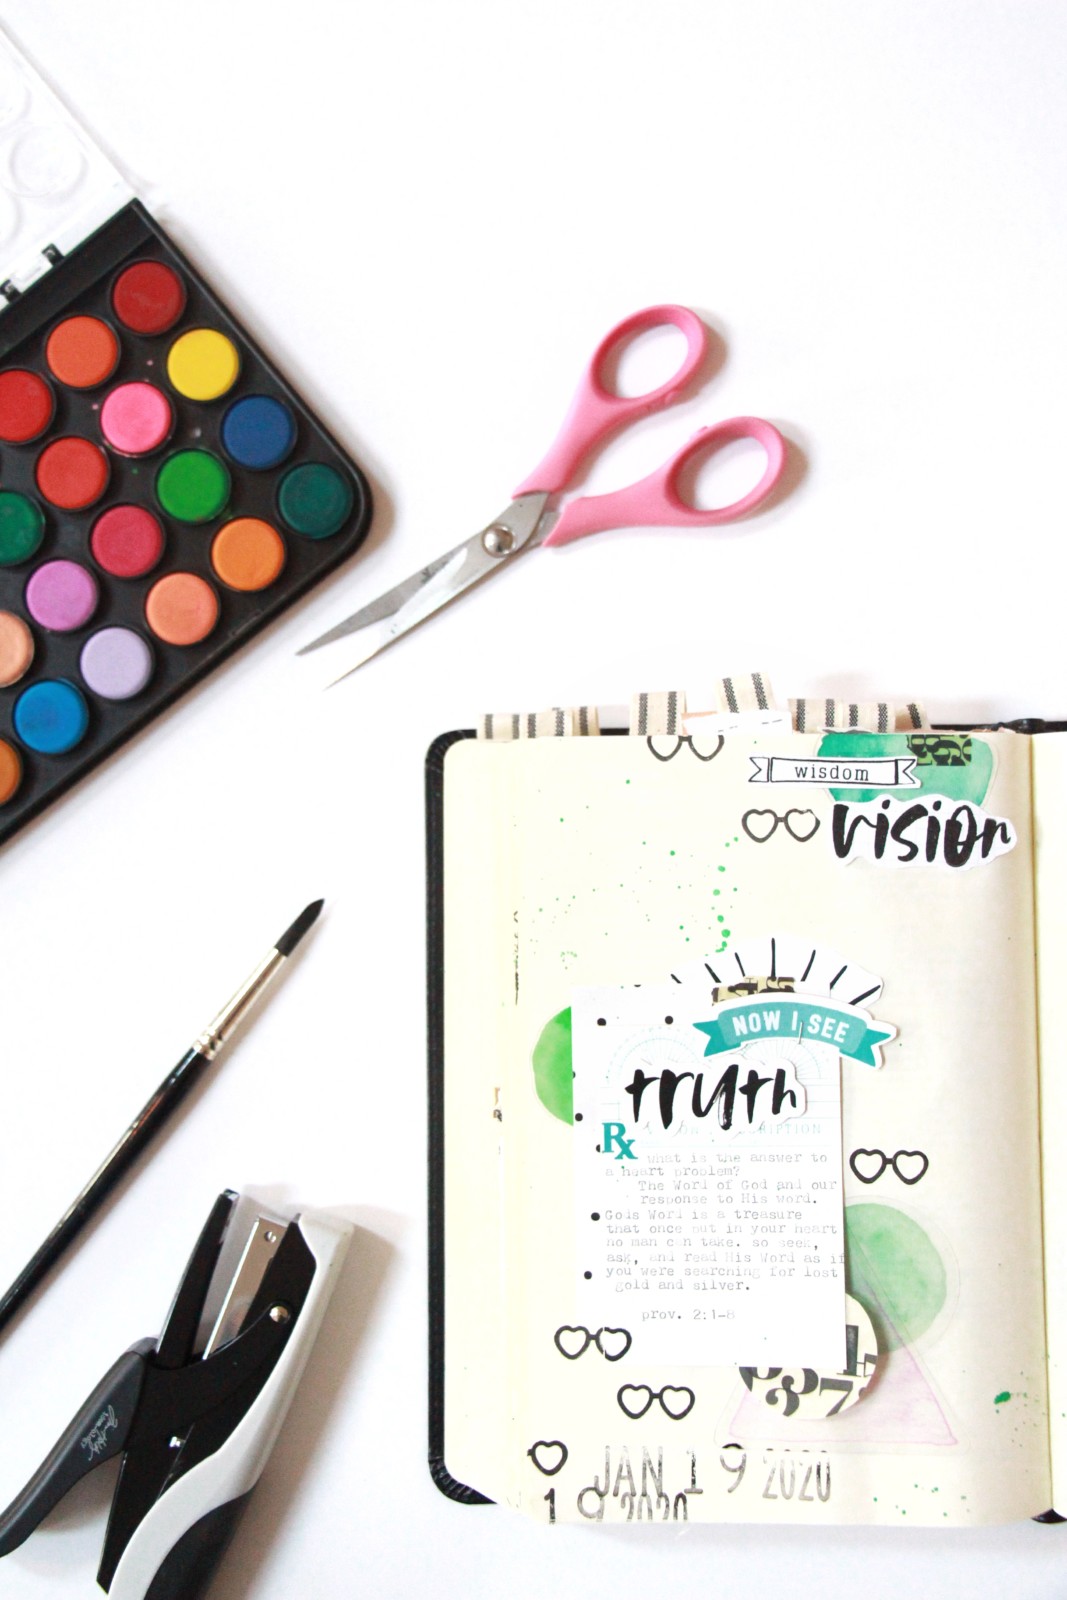 wisdom
vision
NOW I SEE
truth
Rx
what is the answer to
a heart problem?
The Word of God and our
response to His word.
Gods Word is a treasure
that once put in your heart
no man can take. so seek,
ask, and read His Word as if
you were searching for lost
gold and silver.
prov. 2:1-8
37
JAN 19 2020
19 2020